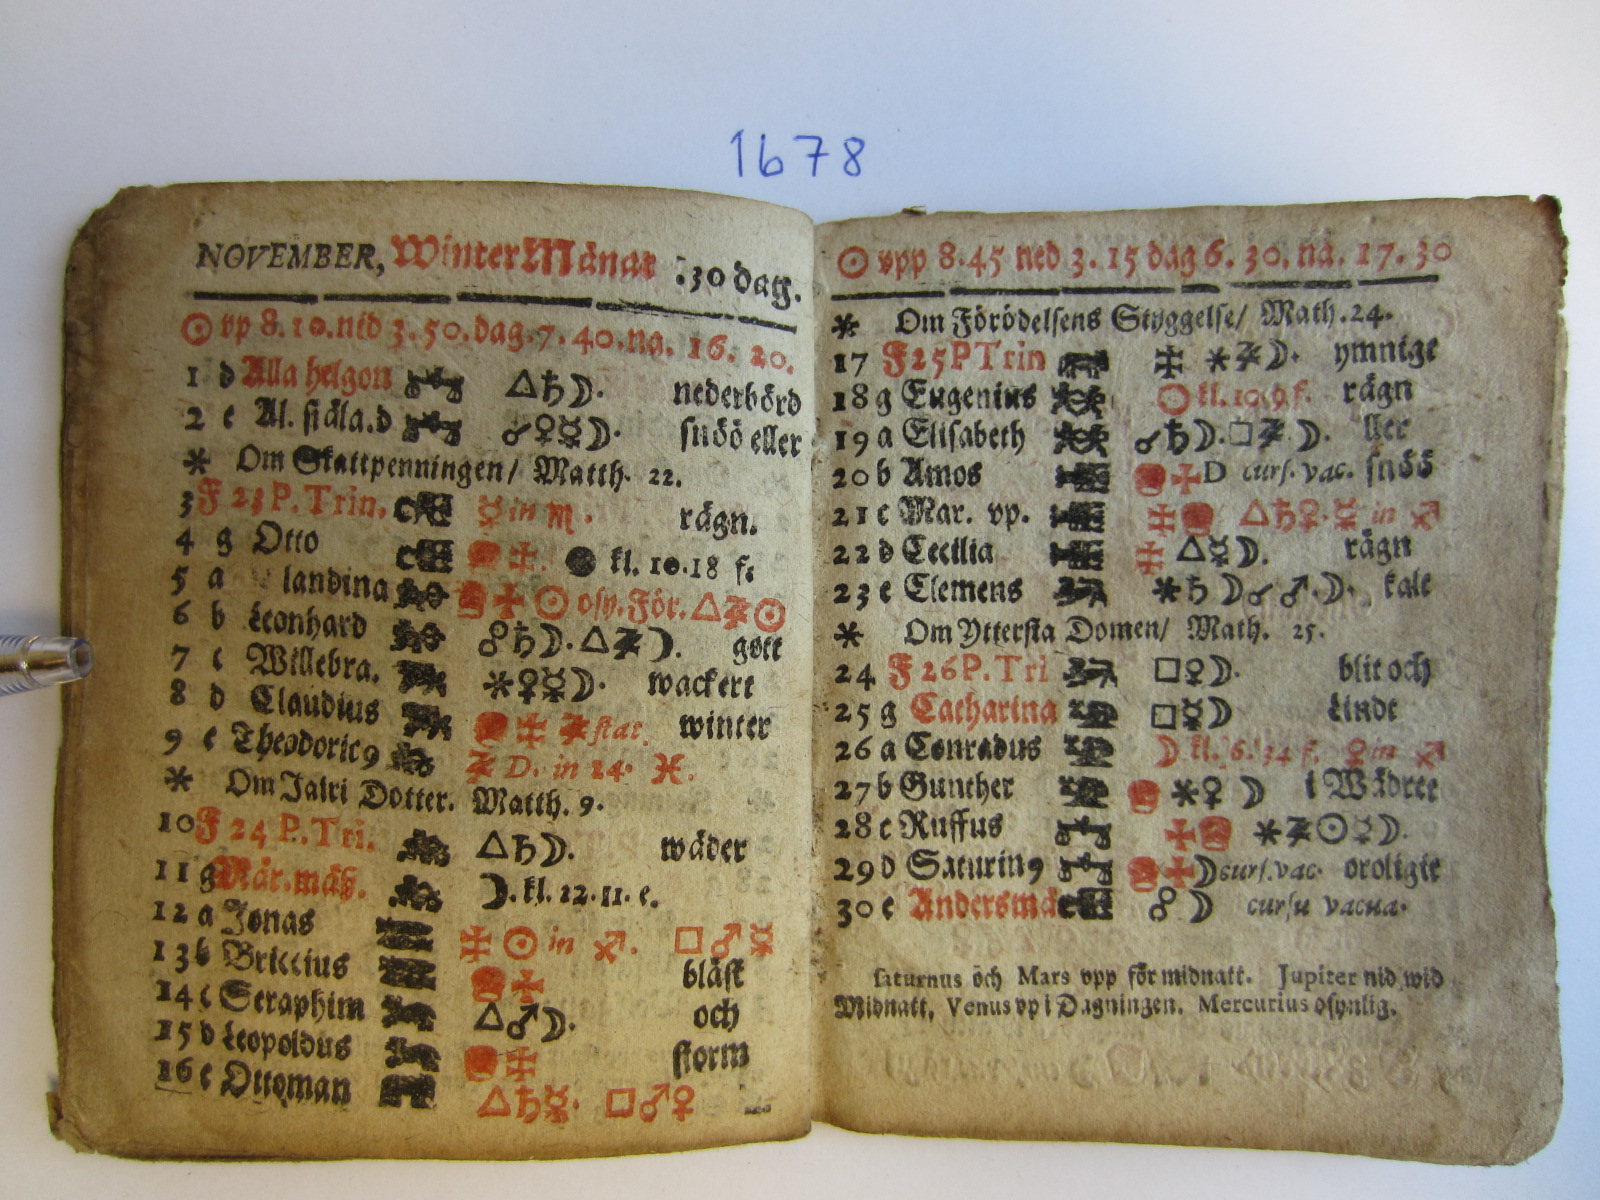 1678
NOVEMBER, Winter Månat :30 dag.
☉ vp 8.10.nid 3.50.dag.7.40.na. 16. 20.
1 d Alla helgon △♄☽. nederbörd
2 e Al. siäla.d ☌♀☿☽. snöö eller
* Om Skattpenningen/ Matth. 22.
3 F 23 P. Trin. ☿ in ♏. rägn.
4 g Otto ● kl. 10.18 f.
5 a landina ☉ osy. För. △♃☉
6 b Leonhard ☍♄☽. △♃☽. gott
7 c Willebra. ⚹♀☿☽. wackert
8 d Claudius ♃ star. winter
9 e Theodoric9 ♃ D. in 14. ♓.
* Om Jairi Dotter. Matth. 9.
10 F 24 P. Tri. △♄☽. wäder
11 g Mår.mäß. ☽. kl. 12.11. e.
12 a Jonas ☉ in ♐. □♂☿
13 b Briccius bläst
14 c Seraphim △♂☽. och
15 d Leopoldus storm
16 e Ottoman △♄☿. □♂♀
☉ vpp 8.45 ned 3. 15 dag 6. 30. na. 17. 30
* Om Förödelsens Styggelse/ Math.24.
17 F 25 P Trin ⚹♃☽. ymnige
18 g Eugenius ☉ kl. 10.9 f. rägn
19 a Elisabeth ☌♄☽. □♃☽. ller
20 b Amos D curs. vac. snöö
21 c Mar. vp. △♄♀. ☿ in ♐
22 d Cecilia △☿☽. rägn
23 e Clemens ⚹♄☽☌♂.☽. kalt
* Om Yttersta Domen/ Math. 25.
24 F 26 P. Tri □♀☽. blit och
25 g Catharina □☿☽ Lindt
26 a Conradus ☽ kl. 6. 34 f. ♀ in ♐
27 b Gunther ⚹♀ ☽ i Wädret
28 c Ruffus ⚹♃☉☿☽.
29 d Saturin9 ☽ curs. vac. oroligit
30 e Andersmä ☍ ☽ cursu vacua.
saturnus öch Mars vpp för midnatt. Jupiter nid wid
Midnatt, Venus vp i Dagningen. Mercurius osynlig.